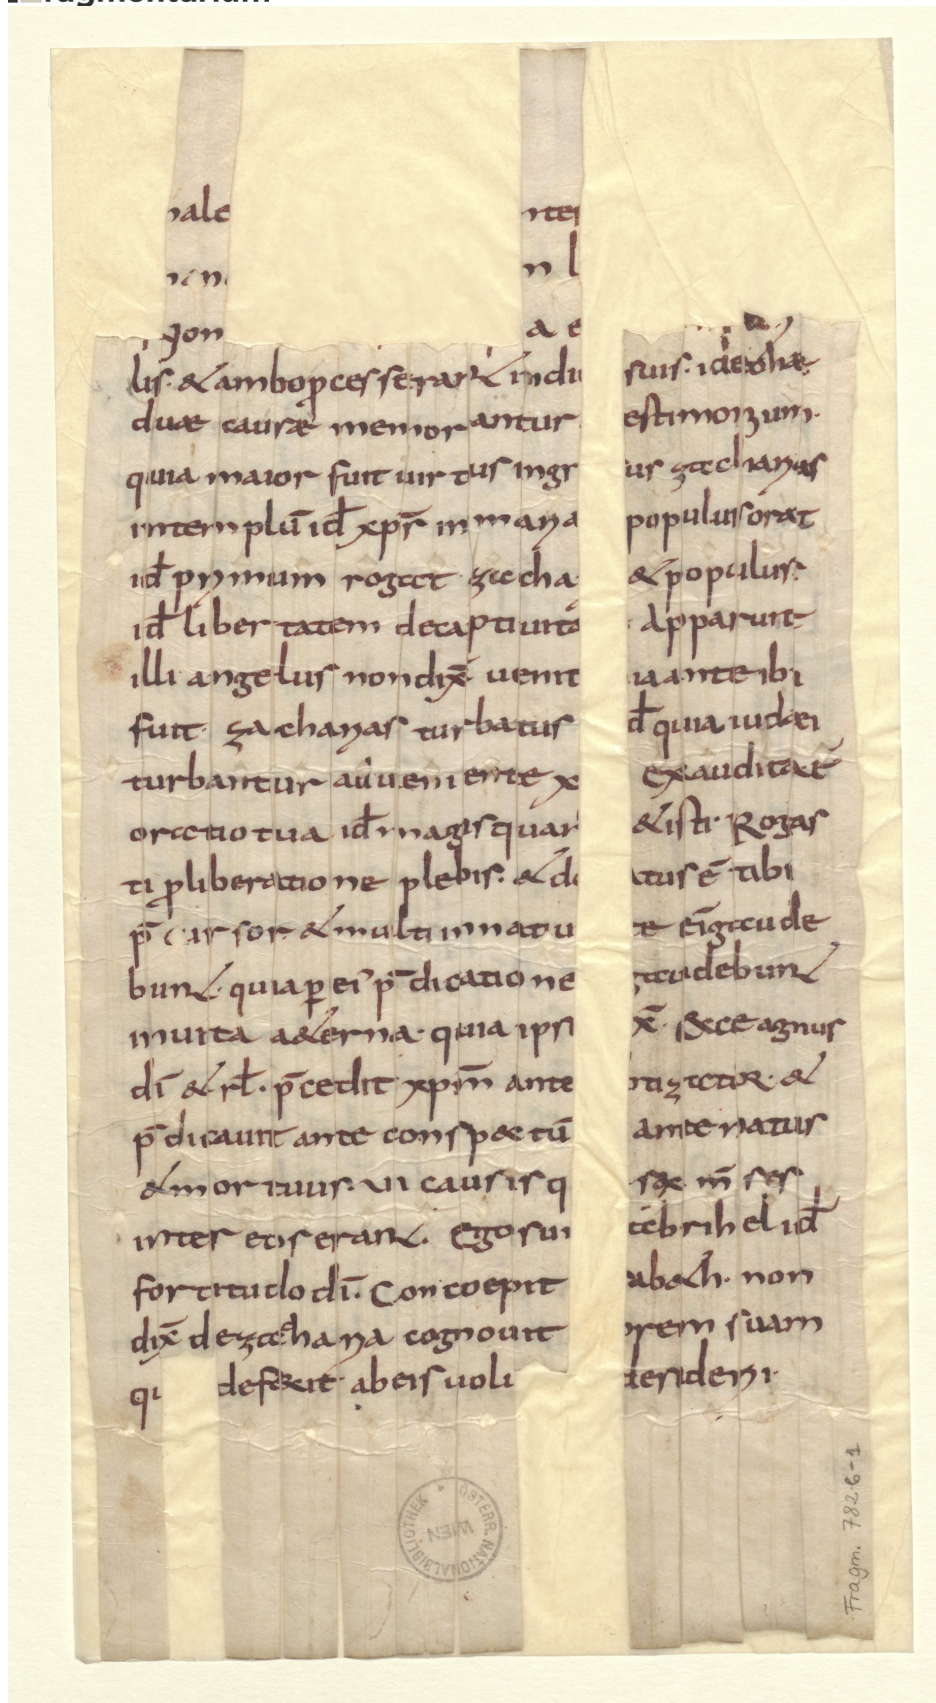 ragmentarium
nale nter
n l
yon a e
lis. & ambo p̄cesserant indu suis. id
duae causae memorantur estimonium.
quia maior fuit uirtus ingr us zachanas
intemplū id̄ xpr̄ in mana populus orat
id̄ primum rogat zacha & populus.
id̄ libertatem decaptiuita Apparuit
illi angelus non dix̄ uenit ia ante ibi
fuit. zacharias turbatus d̄ quia iudaei
turbantur adueniente x exaudita ē
oratio tua id̄ magis quam & isti Rogas
ti p̄ liberatione plebis. & do atus ē tibi
p̄cursor. & multi in natu te eī gaude
bunt. quia per eī p̄dicatione gaudebunt
inuita aeterna. quia ipsi x̄. Ecce agnus
dī & rl̄. p̄cedit xpm̄ ante tizator. &
p̄dicauit ante conspectū ante natus
& mortuus. in causis q
inter eos erant. Ego sum gabrihel id̄
fortitudo dī. Concoepit abeth. non
dix̄ de zacharia cognouit orem suam
qu defecit ab eis uoli desideri
ÖSTERR. NATIONALBIBLIOTHEK
WIEN
Fragm. 782.6-1